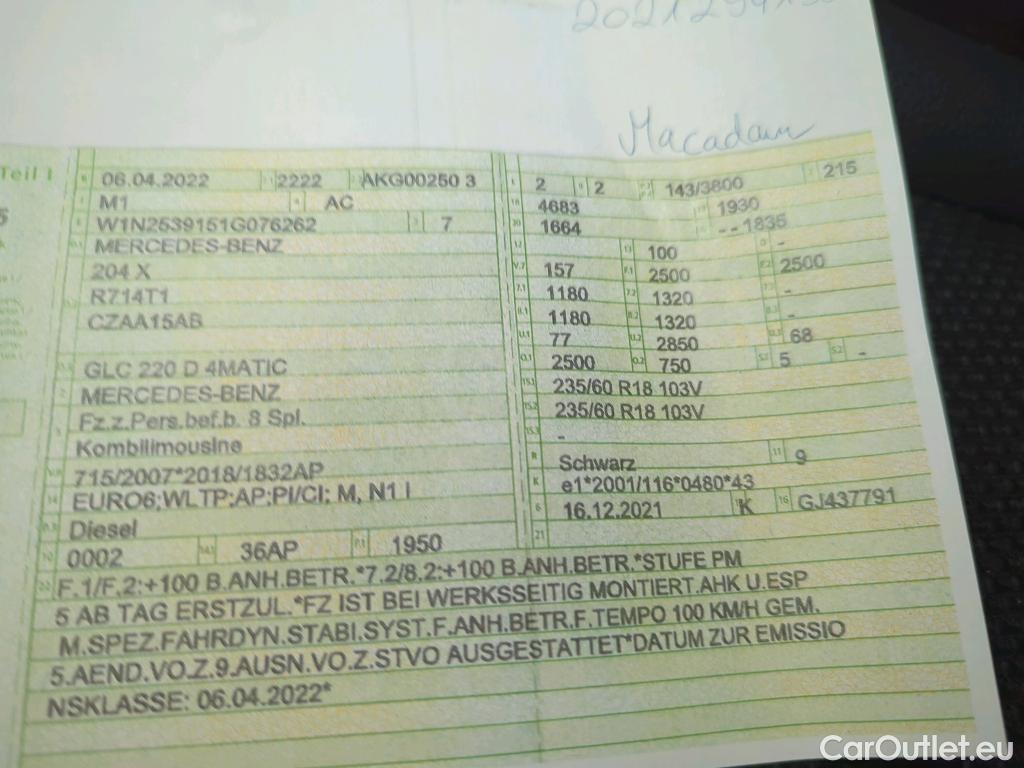 Macadam
Teil I
06.04.2022 2222 AKG00250 3
M1 AC
W1N2539151G076262 7
MERCEDES-BENZ
204 X
R714T1
CZAA15AB
GLC 220 D 4MATIC
MERCEDES-BENZ
Fz.z.Pers.bef.b. 8 Spl.
Kombilimousine
715/2007*2018/1832AP
EURO6;WLTP;AP;PI/CI; M, N1 I
Diesel
0002 14.1 36AP P.1 1950
2 2 143/3800 215
4683 1930
1664 - - 1835
100 -
157 2500 2500
1180 1320 -
1180 1320 -
77 2850 68
2500 750 5 -
235/60 R18 103V
235/60 R18 103V
-
Schwarz 11 9
K e1*2001/116*0480*43
6 16.12.2021 K 16 GJ437791
21
22 F.1/F.2:+100 B.ANH.BETR.*7.2/8.2:+100 B.ANH.BETR.*STUFE PM
5 AB TAG ERSTZUL.*FZ IST BEI WERKSSEITIG MONTIERT.AHK U.ESP
M.SPEZ.FAHRDYN.STABI.SYST.F.ANH.BETR.F.TEMPO 100 KM/H GEM.
5.AEND.VO.Z.9.AUSN.VO.Z.STVO AUSGESTATTET*DATUM ZUR EMISSIO
NSKLASSE: 06.04.2022*
CarOutlet.eu